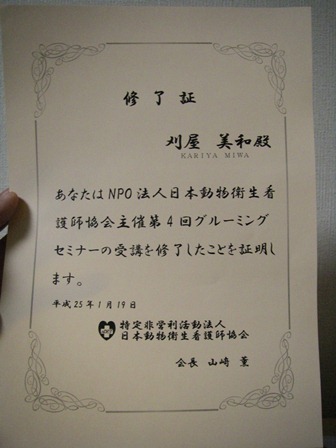 修了証
刈屋 美和殿
KARIYA MIWA
あなたはNPO法人日本動物衛生看
護師協会主催第4回グルーミング
セミナーの受講を修了したことを証明し
ます。
平成25年1月19日
特定非営利活動法人
日本動物衛生看護師協会
会長 山﨑 薫